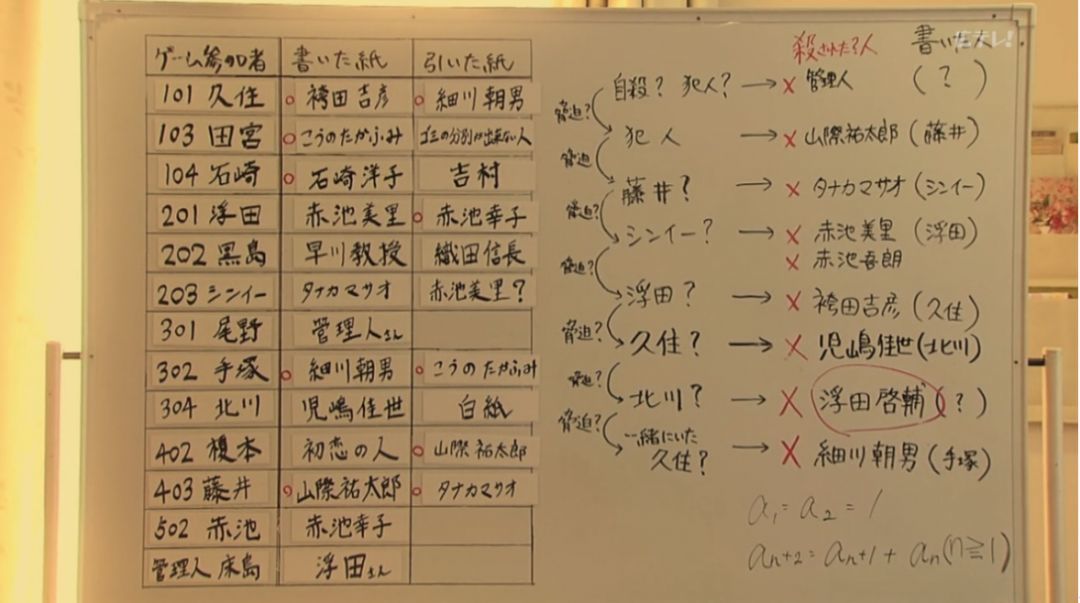 ゲーム参加者 書いた紙 引いた紙
101 久住 ○ 袴田吉彦 ○ 細川朝男
103 田宮 ○ こうのたかふみ ゴミの分別が出来ない人
104 石崎 ○ 石崎洋子 吉村
201 浮田 赤池美里 ○ 赤池幸子
202 黒島 早川教授 織田信長
203 シンイー タナカマサオ 赤池美里?
301 尾野 管理人さん
302 手塚 ○ 細川朝男 ○ こうのたかふみ
304 北川 児嶋佳世 白紙
402 榎本 初恋の人 ○ 山際祐太郎
403 藤井 ○ 山際祐太郎 ○ タナカマサオ
502 赤池 赤池幸子
管理人 床島 浮田さん
殺された?人 書いた人
日テレ!
自殺? 犯人? → × 管理人 (?)
脅迫?
犯人 → × 山際祐太郎 (藤井)
脅迫
藤井? → × タナカマサオ (シンイー)
脅迫?
シンイー? → × 赤池美里 (浮田)
× 赤池吾朗
脅迫?
浮田? → × 袴田吉彦 (久住)
脅迫?
久住? → × 児嶋佳世 (北川)
脅迫?
北川? → × 浮田啓輔 (?)
脅迫?
一緒にいた
久住? → × 細川朝男 (手塚)
a₁ = a₂ = 1
aₙ₊₂ = aₙ₊₁ + aₙ (n≧1)